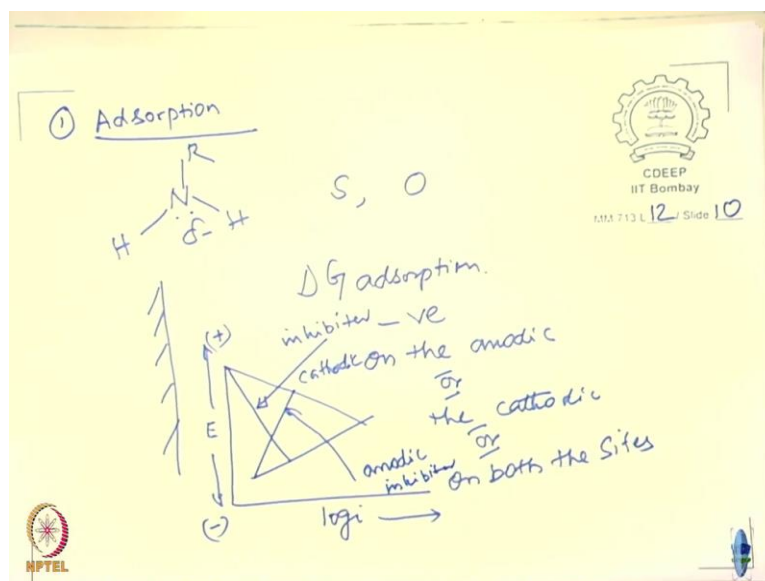 ① Adsorption
R
N
H
δ-
H
S, O
CDEEP
IIT Bombay
MM 713 L 12 / Slide 10
ΔG adsorption.
inhibiter
-ve
cathodic
on the anodic
or
the cathodic
or
on both the sites
anodic
inhibiter
(+)
E
(-)
log i
NPTEL